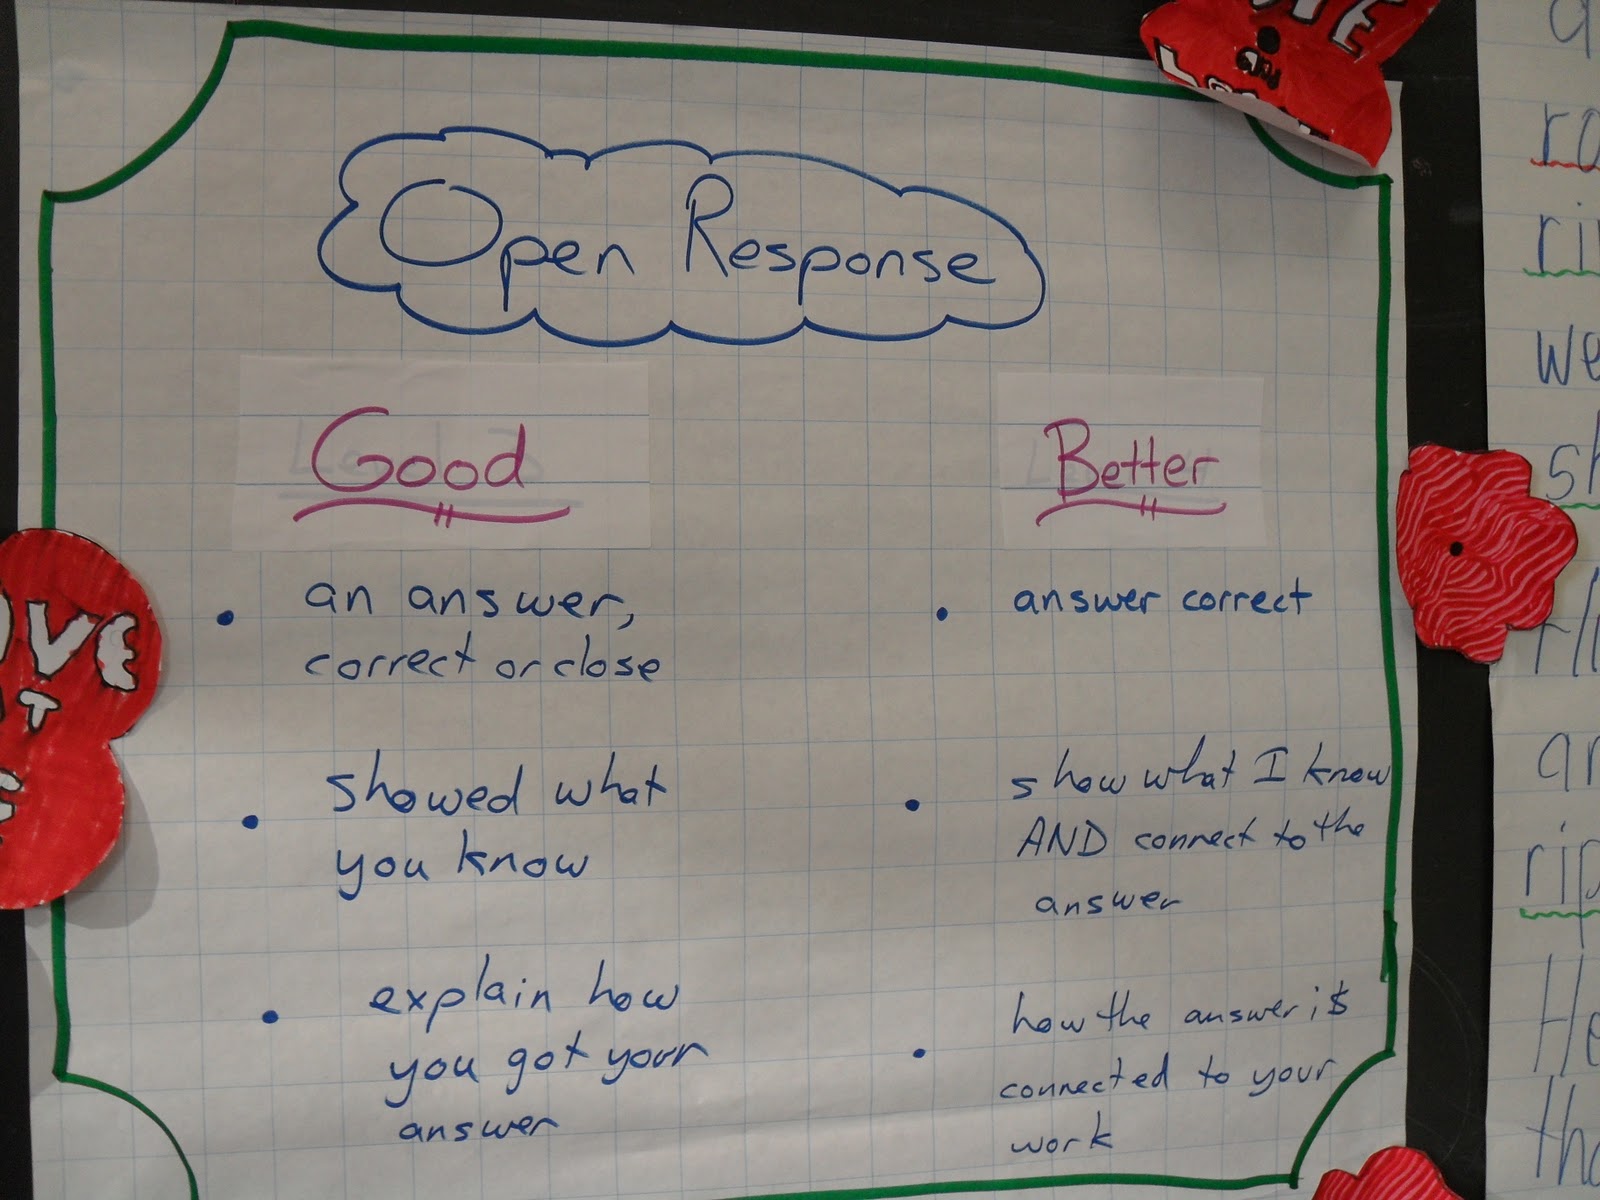 Open Response
Good
an answer,
correct or close
showed what
you know
explain how
you got your
answer
Better
answer correct
show what I know
AND connect to the
answer
how the answer is
connected to your
work